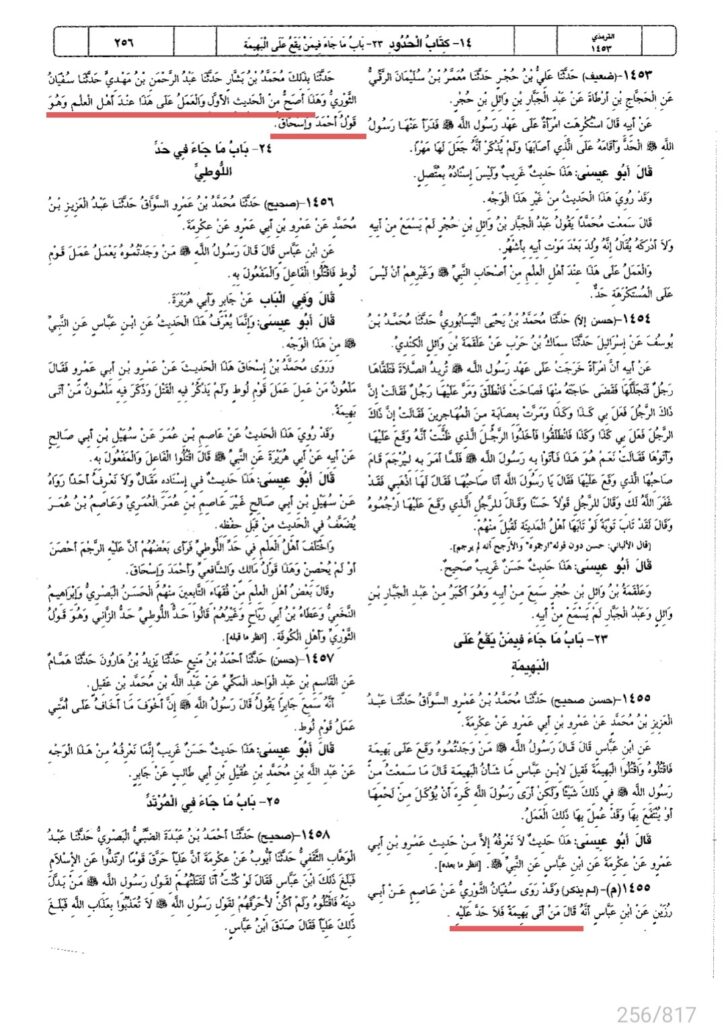 الترمذي
١٤٥٣
١٤- كِتَابُ الْحُدُودِ ٢٣- بَابُ مَا جَاءَ فِيمَنْ يَقَعُ عَلَى الْبَهِيمَةِ
٢٥٦
١٤٥٣-(ضعيف) حَدَّثَنَا عَلِيُّ بْنُ حُجْرٍ حَدَّثَنَا مُعَمَّرُ بْنُ سُلَيْمَانَ الرَّقِّيُّ
عَنِ الْحَجَّاجِ بْنِ أَرْطَاةَ عَنْ عَبْدِ الْجَبَّارِ بْنِ وَائِلِ بْنِ حُجْرٍ.
عَنْ أَبِيهِ قَالَ اسْتُكْرِهَتِ امْرَأَةٌ عَلَى عَهْدِ رَسُولِ اللَّهِ ﷺ فَدَرَأَ عَنْهَا رَسُولُ
اللَّهِ ﷺ الْحَدَّ وَأَقَامَهُ عَلَى الَّذِي أَصَابَهَا وَلَمْ يُذْكَرْ أَنَّهُ جَعَلَ لَهَا مَهْرًا.
قَالَ أَبُو عِيسَى: هَذَا حَدِيثٌ غَرِيبٌ وَلَيْسَ إِسْنَادُهُ بِمُتَّصِلٍ.
وَقَدْ رُوِيَ هَذَا الْحَدِيثُ مِنْ غَيْرِ هَذَا الْوَجْهِ.
قَالَ سَمِعْت مُحَمَّدًا يَقُولُ عَبْدُ الْجَبَّارِ بْنُ وَائِلِ بْنِ حُجْرٍ لَمْ يَسْمَعْ مِنْ أَبِيهِ
وَلَا أَدْرَكَهُ يُقَالُ إِنَّهُ وُلِدَ بَعْدَ مَوْتِ أَبِيهِ بِأَشْهُرٍ.
وَالْعَمَلُ عَلَى هَذَا عِنْدَ أَهْلِ الْعِلْمِ مِنْ أَصْحَابِ النَّبِيِّ ﷺ وَغَيْرِهِمْ أَنْ لَيْسَ
عَلَى الْمُسْتَكْرَهَةِ حَدٌّ.
١٤٥٤-(حسن إلا) حَدَّثَنَا مُحَمَّدُ بْنُ يَحْيَى النَّيْسَابُورِيُّ حَدَّثَنَا مُحَمَّدُ بْنُ
يُوسُفَ عَنْ إِسْرَائِيلَ حَدَّثَنَا سِمَاكُ بْنُ حَرْبٍ عَنْ عَلْقَمَةَ بْنِ وَائِلٍ الْكِنْدِيِّ.
عَنْ أَبِيهِ أَنَّ امْرَأَةً خَرَجَتْ عَلَى عَهْدِ رَسُولِ اللَّهِ ﷺ تُرِيدُ الصَّلَاةَ فَتَلَقَّاهَا
رَجُلٌ فَتَجَلَّلَهَا فَقَضَى حَاجَتَهُ مِنْهَا فَصَاحَتْ فَانْطَلَقَ وَمَرَّ عَلَيْهَا رَجُلٌ فَقَالَتْ إِنَّ
ذَاكَ الرَّجُلَ فَعَلَ بِي كَذَا وَكَذَا وَمَرَّتْ بِعِصَابَةٍ مِنَ الْمُهَاجِرِينَ فَقَالَتْ إِنَّ ذَاكَ
الرَّجُلَ فَعَلَ بِي كَذَا وَكَذَا فَانْطَلَقُوا فَأَخَذُوا الرَّجُلَ الَّذِي ظَنَّتْ أَنَّهُ وَقَعَ عَلَيْهَا
وَأَتَوْهَا فَقَالَتْ نَعَمْ هُوَ هَذَا فَأَتَوْا بِهِ رَسُولَ اللَّهِ ﷺ فَلَمَّا أَمَرَ بِهِ لِيُرْجَمَ قَامَ
صَاحِبُهَا الَّذِي وَقَعَ عَلَيْهَا فَقَالَ يَا رَسُولَ اللَّهِ أَنَا صَاحِبُهَا فَقَالَ لَهَا اذْهَبِي فَقَدْ
غَفَرَ اللَّهُ لَكِ وَقَالَ لِلرَّجُلِ قَوْلًا حَسَنًا وَقَالَ لِلرَّجُلِ الَّذِي وَقَعَ عَلَيْهَا ارْجُمُوهُ
وَقَالَ لَقَدْ تَابَ تَوْبَةً لَوْ تَابَهَا أَهْلُ الْمَدِينَةِ لَقُبِلَ مِنْهُمْ.
[قال الألباني: حسن دون قوله "ارجموه" والأرجح أنه لم يرجم]
قَالَ أَبُو عِيسَى: هَذَا حَدِيثٌ حَسَنٌ غَرِيبٌ صَحِيحٌ.
وَعَلْقَمَةُ بْنُ وَائِلِ بْنِ حُجْرٍ سَمِعَ مِنْ أَبِيهِ وَهُوَ أَكْبَرُ مِنْ عَبْدِ الْجَبَّارِ بْنِ
وَائِلٍ وَعَبْدُ الْجَبَّارِ لَمْ يَسْمَعْ مِنْ أَبِيهِ.
٢٣- بَابُ مَا جَاءَ فِيمَنْ يَقَعُ عَلَى
الْبَهِيمَةِ
١٤٥٥-(حسن صحيح) حَدَّثَنَا مُحَمَّدُ بْنُ عَمْرٍو السَّوَّاقُ حَدَّثَنَا عَبْدُ
الْعَزِيزِ بْنُ مُحَمَّدٍ عَنْ عَمْرِو بْنِ أَبِي عَمْرٍو عَنْ عِكْرِمَةَ.
عَنِ ابْنِ عَبَّاسٍ قَالَ قَالَ رَسُولُ اللَّهِ ﷺ مَنْ وَجَدْتُمُوهُ وَقَعَ عَلَى بَهِيمَةٍ
فَاقْتُلُوهُ وَاقْتُلُوا الْبَهِيمَةَ فَقِيلَ لِابْنِ عَبَّاسٍ مَا شَأْنُ الْبَهِيمَةِ قَالَ مَا سَمِعْتُ مِنْ
رَسُولِ اللَّهِ ﷺ فِي ذَلِكَ شَيْئًا وَلَكِنْ أَرَى رَسُولَ اللَّهِ كَرِهَ أَنْ يُؤْكَلَ مِنْ لَحْمِهَا
أَوْ يُنْتَفَعَ بِهَا وَقَدْ عُمِلَ بِهَا ذَلِكَ الْعَمَلُ.
قَالَ أَبُو عِيسَى: هَذَا حَدِيثٌ لَا نَعْرِفُهُ إِلَّا مِنْ حَدِيثِ عَمْرِو بْنِ أَبِي
عَمْرٍو عَنْ عِكْرِمَةَ عَنِ ابْنِ عَبَّاسٍ عَنِ النَّبِيِّ ﷺ. [انظر ما بعده]
١٤٥٥(م)-(لم يذكر) وَقَدْ رَوَى سُفْيَانُ الثَّوْرِيُّ عَنْ عَاصِمٍ عَنْ أَبِي
رُزَيْنٍ عَنِ ابْنِ عَبَّاسٍ أَنَّهُ قَالَ مَنْ أَتَى بَهِيمَةً فَلَا حَدَّ عَلَيْهِ .
حَدَّثَنَا بِذَلِكَ مُحَمَّدُ بْنُ بَشَّارٍ حَدَّثَنَا عَبْدُ الرَّحْمَنِ بْنُ مَهْدِيٍّ حَدَّثَنَا سُفْيَانُ
الثَّوْرِيُّ وَهَذَا أَصَحُّ مِنَ الْحَدِيثِ الْأَوَّلِ وَالْعَمَلُ عَلَى هَذَا عِنْدَ أَهْلِ الْعِلْمِ وَهُوَ
قَوْلُ أَحْمَدَ وَإِسْحَاقَ.
٢٤- بَابُ مَا جَاءَ فِي حَدِّ
اللُّوطِيِّ
١٤٥٦-(صحيح) حَدَّثَنَا مُحَمَّدُ بْنُ عَمْرٍو السَّوَّاقُ حَدَّثَنَا عَبْدُ الْعَزِيزِ بْنُ
مُحَمَّدٍ عَنْ عَمْرِو بْنِ أَبِي عَمْرٍو عَنْ عِكْرِمَةَ.
عَنِ ابْنِ عَبَّاسٍ قَالَ قَالَ رَسُولُ اللَّهِ ﷺ مَنْ وَجَدْتُمُوهُ يَعْمَلُ عَمَلَ قَوْمِ
لُوطٍ فَاقْتُلُوا الْفَاعِلَ وَالْمَفْعُولَ بِهِ.
قَالَ وَفِي الْبَاب عَنْ جَابِرٍ وَأَبِي هُرَيْرَةَ.
قَالَ أَبُو عِيسَى: وَإِنَّمَا يُعْرَفُ هَذَا الْحَدِيثُ عَنِ ابْنِ عَبَّاسٍ عَنِ النَّبِيِّ
ﷺ مِنْ هَذَا الْوَجْهِ.
وَرَوَى مُحَمَّدُ بْنُ إِسْحَاقَ هَذَا الْحَدِيثَ عَنْ عَمْرِو بْنِ أَبِي عَمْرٍو فَقَالَ
مَلْعُونٌ مَنْ عَمِلَ عَمَلَ قَوْمِ لُوطٍ وَلَمْ يَذْكُرْ فِيهِ الْقَتْلَ وَذَكَرَ فِيهِ مَلْعُونٌ مَنْ أَتَى
بَهِيمَةً.
وَقَدْ رُوِيَ هَذَا الْحَدِيثُ عَنْ عَاصِمِ بْنِ عُمَرَ عَنْ سُهَيْلِ بْنِ أَبِي صَالِحٍ
عَنْ أَبِيهِ عَنْ أَبِي هُرَيْرَةَ عَنِ النَّبِيِّ ﷺ قَالَ اقْتُلُوا الْفَاعِلَ وَالْمَفْعُولَ بِهِ.
قَالَ أَبُو عِيسَى: هَذَا حَدِيثٌ فِي إِسْنَادِهِ مَقَالٌ وَلَا نَعْرِفُ أَحَدًا رَوَاهُ
عَنْ سُهَيْلِ بْنِ أَبِي صَالِحٍ غَيْرَ عَاصِمِ بْنِ عُمَرَ الْعُمَرِيِّ وَعَاصِمُ بْنُ عُمَرَ
يُضَعَّفُ فِي الْحَدِيثِ مِنْ قِبَلِ حِفْظِهِ.
وَاخْتَلَفَ أَهْلُ الْعِلْمِ فِي حَدِّ اللُّوطِيِّ فَرَأَى بَعْضُهُمْ أَنَّ عَلَيْهِ الرَّجْمَ أَحْصَنَ
أَوْ لَمْ يُحْصِنْ وَهَذَا قَوْلُ مَالِكٍ وَالشَّافِعِيِّ وَأَحْمَدَ وَإِسْحَاقَ.
وَقَالَ بَعْضُ أَهْلِ الْعِلْمِ مِنْ فُقَهَاءِ التَّابِعِينَ مِنْهُمُ الْحَسَنُ الْبَصْرِيُّ وَإِبْرَاهِيمُ
النَّخَعِيُّ وَعَطَاءُ بْنُ أَبِي رَبَاحٍ وَغَيْرُهُمْ قَالُوا حَدُّ اللُّوطِيِّ حَدُّ الزَّانِي وَهُوَ قَوْلُ
الثَّوْرِيِّ وَأَهْلِ الْكُوفَةِ. [انظر ما قبله].
١٤٥٧-(حسن) حَدَّثَنَا أَحْمَدُ بْنُ مَنِيعٍ حَدَّثَنَا يَزِيدُ بْنُ هَارُونَ حَدَّثَنَا هَمَّامٌ
عَنِ الْقَاسِمِ بْنِ عَبْدِ الْوَاحِدِ الْمَكِّيِّ عَنْ عَبْدِ اللَّهِ بْنِ مُحَمَّدِ بْنِ عَقِيلٍ.
أَنَّهُ سَمِعَ جَابِرًا يَقُولُ قَالَ رَسُولُ اللَّهِ ﷺ إِنَّ أَخْوَفَ مَا أَخَافُ عَلَى أُمَّتِي
عَمَلُ قَوْمِ لُوطٍ.
قَالَ أَبُو عِيسَى: هَذَا حَدِيثٌ حَسَنٌ غَرِيبٌ إِنَّمَا نَعْرِفُهُ مِنْ هَذَا الْوَجْهِ
عَنْ عَبْدِ اللَّهِ بْنِ مُحَمَّدِ بْنِ عَقِيلِ بْنِ أَبِي طَالِبٍ عَنْ جَابِرٍ.
٢٥- بَابُ مَا جَاءَ فِي الْمُرْتَدِّ
١٤٥٨-(صحيح) حَدَّثَنَا أَحْمَدُ بْنُ عَبْدَةَ الضَّبِّيُّ الْبَصْرِيُّ حَدَّثَنَا عَبْدُ
الْوَهَّابِ الثَّقَفِيُّ حَدَّثَنَا أَيُّوبُ عَنْ عِكْرِمَةَ أَنَّ عَلِيًّا حَرَّقَ قَوْمًا ارْتَدُّوا عَنِ الْإِسْلَامِ
فَبَلَغَ ذَلِكَ ابْنَ عَبَّاسٍ فَقَالَ لَوْ كُنْتُ أَنَا لَقَتَلْتُهُمْ لِقَوْلِ رَسُولِ اللَّهِ ﷺ مَنْ بَدَّلَ
دِينَهُ فَاقْتُلُوهُ وَلَمْ أَكُنْ لِأُحَرِّقَهُمْ لِقَوْلِ رَسُولِ اللَّهِ ﷺ لَا تُعَذِّبُوا بِعَذَابِ اللَّهِ فَبَلَغَ
ذَلِكَ عَلِيًّا فَقَالَ صَدَقَ ابْنُ عَبَّاسٍ.
256/817